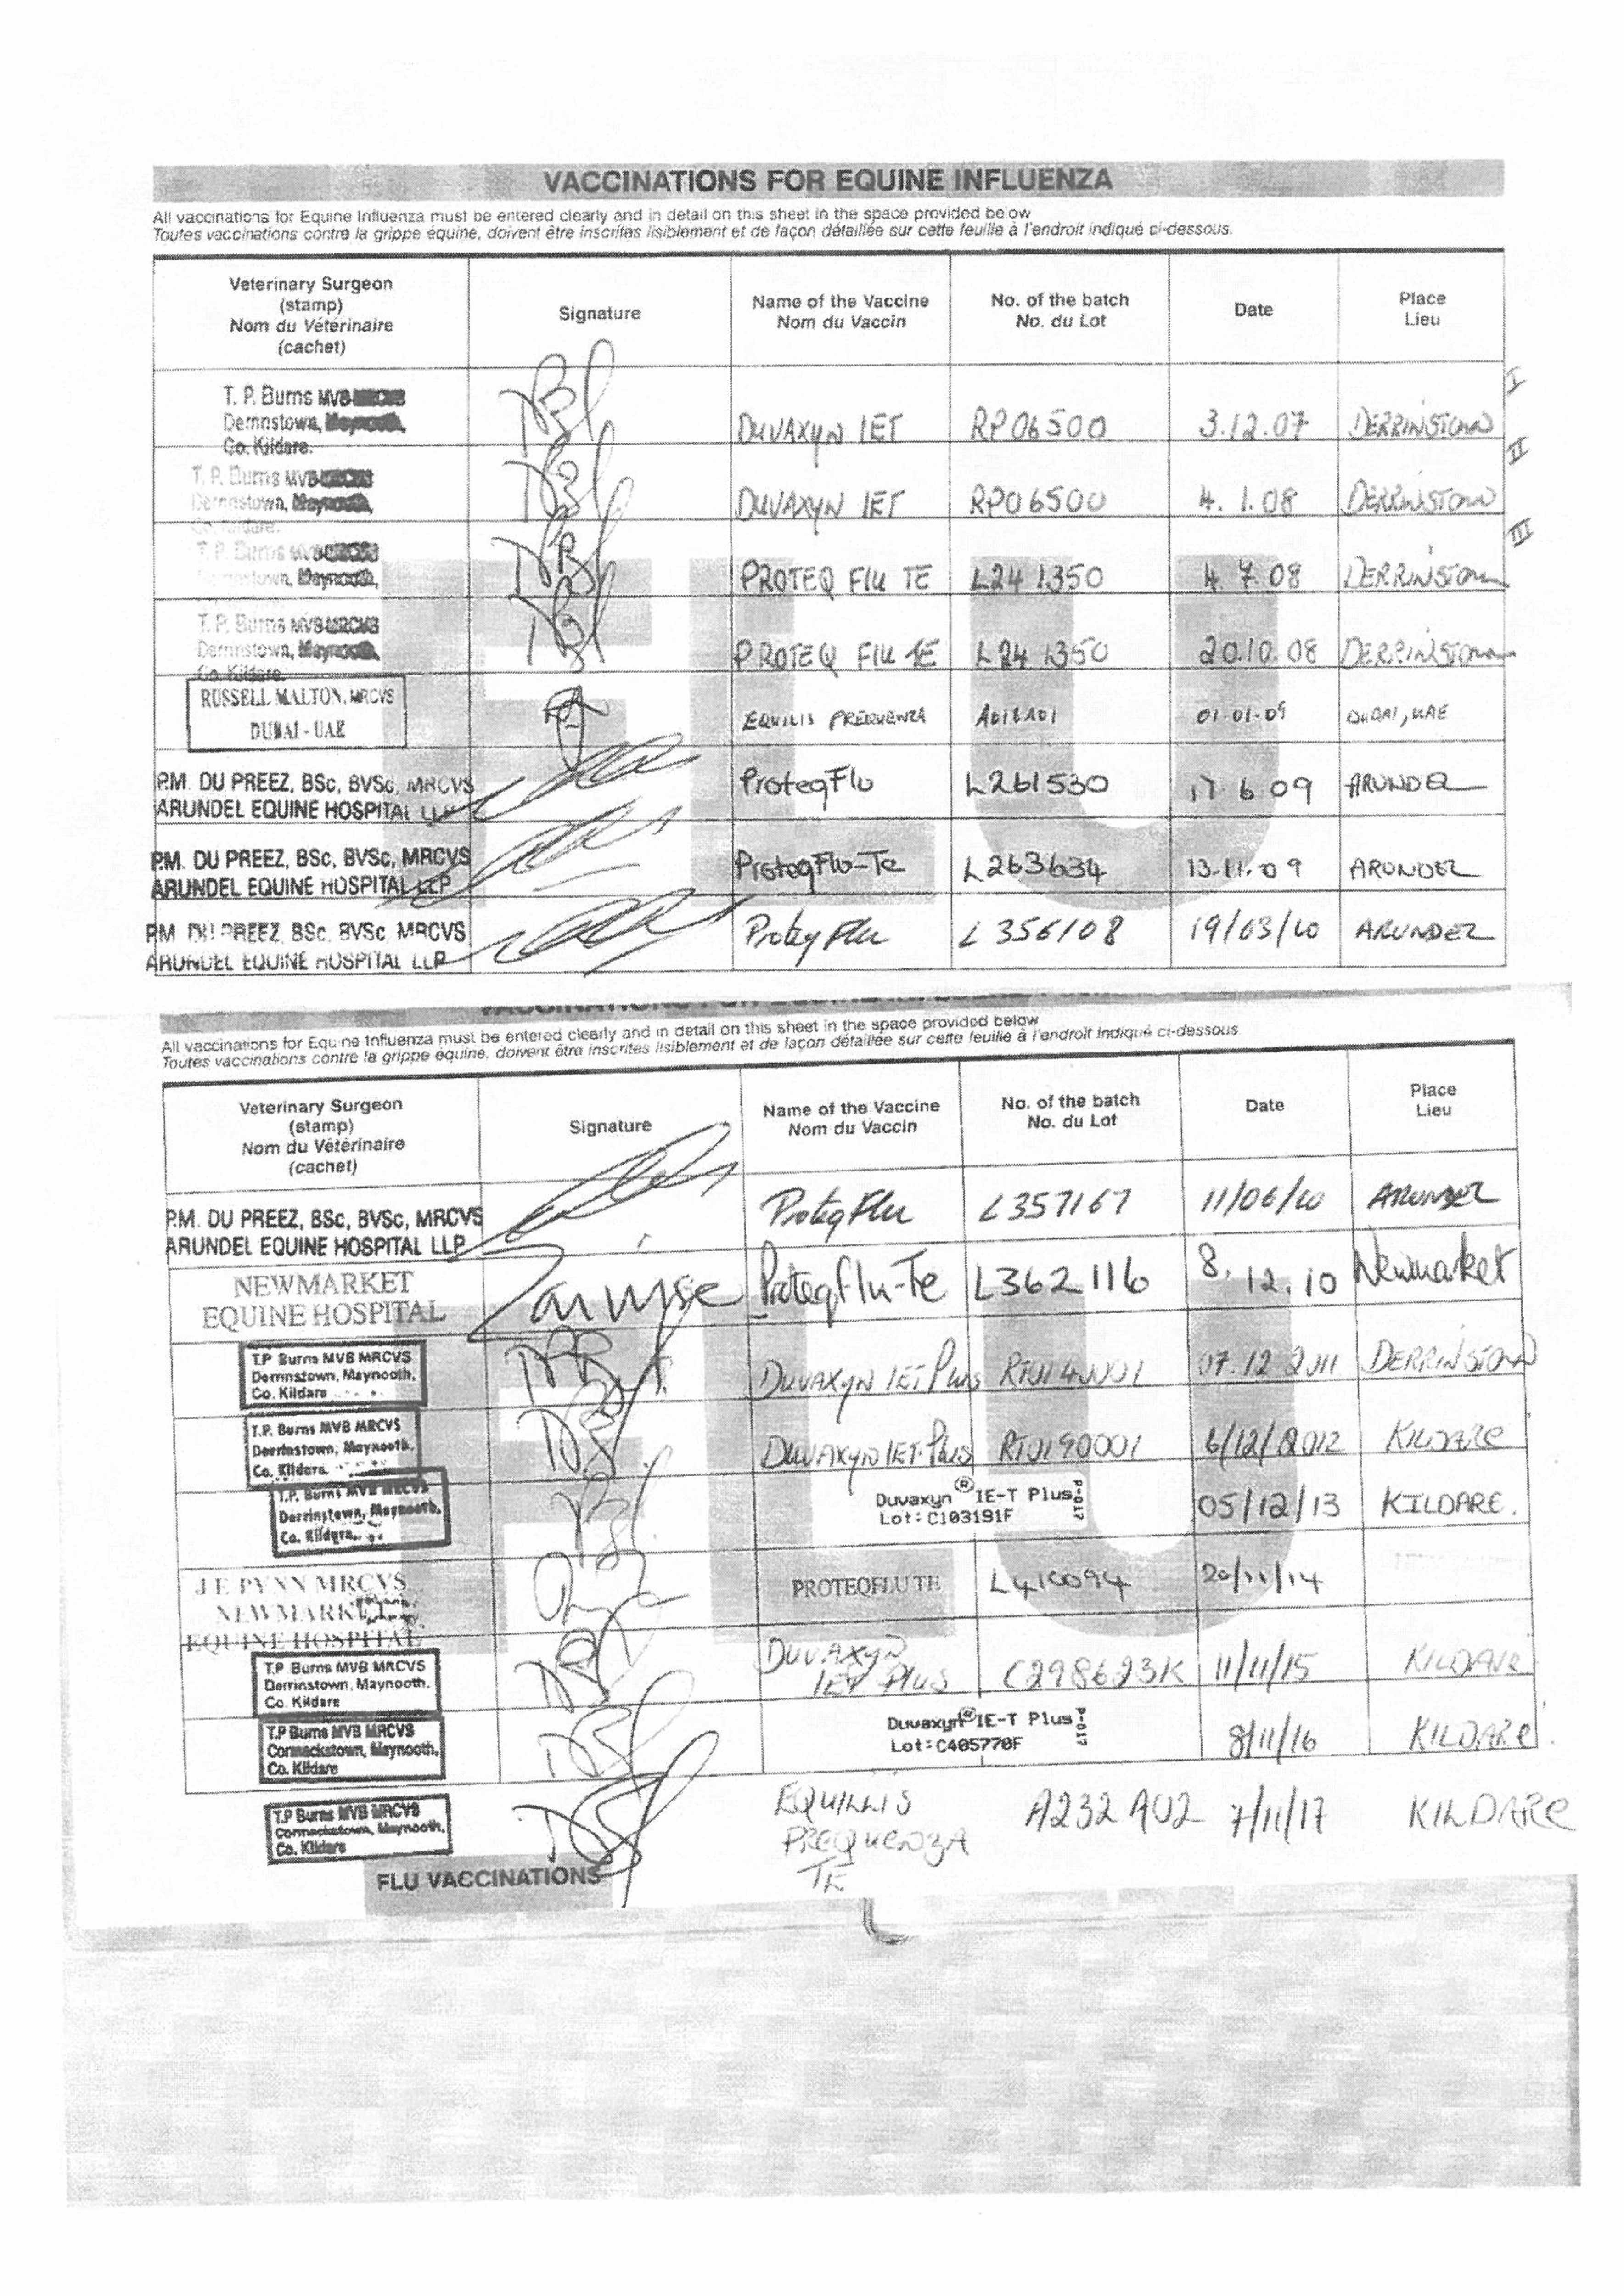 VACCINATIONS FOR EQUINE INFLUENZA
All vaccinations for Equine Influenza must be entered clearly and in detail on this sheet in the space provided below
Toutes vaccinations contre la grippe équine, doivent être inscrites lisiblement et de façon détaillée sur cette feuille à l'endroit indiqué ci-dessous.
Veterinary Surgeon
(stamp)
Nom du Vétérinaire
(cachet)
Signature
Name of the Vaccine
Nom du Vaccin
No. of the batch
No. du Lot
Date
Place
Lieu
I
T. P. Burns MVB MRCVS
Derrinstown, Maynooth,
Co. Kildare.
DUVAXYN IET RP06500 3.12.07 DERRINSTOWN
II
T. P. Burns MVB
Derrinstown, Maynooth,
Co. Kildare.
DUVAXYN IET RP06500 4.1.08 DERRINSTOWN
III
T. P. Burns MVB
Derrinstown, Maynooth,
PROTEQ FLU TE L241350 4.7.08 DERRINSTOWN
T. P. Burns MVB MRCVS
Derrinstown, Maynooth,
Co. Kildare.
PROTEQ FLU TE L241350 20.10.08 DERRINSTOWN
RUSSELL MALTON, MRCVS
DUBAI - UAE
EQUILIS PREQUENZA 01-01-09 DUBAI, UAE
P.M. DU PREEZ, BSc, BVSc, MRCVS
ARUNDEL EQUINE HOSPITAL LLP
ProteqFlu L261530 17 6 09 ARUNDEL
P.M. DU PREEZ, BSc, BVSc, MRCVS
ARUNDEL EQUINE HOSPITAL LLP
ProteqFlu-Te L263634 13.11.09 ARUNDEL
P.M. DU PREEZ, BSc, BVSc, MRCVS
ARUNDEL EQUINE HOSPITAL LLP
Proteq Flu L356108 19/03/10 ARUNDEL
FLU
All vaccinations for Equine Influenza must be entered clearly and in detail on this sheet in the space provided below
Toutes vaccinations contre la grippe équine, doivent être inscrites lisiblement et de façon détaillée sur cette feuille à l'endroit indiqué ci-dessous
Veterinary Surgeon
(stamp)
Nom du Vétérinaire
(cachet)
Signature
Name of the Vaccine
Nom du Vaccin
No. of the batch
No. du Lot
Date
Place
Lieu
P.M. DU PREEZ, BSc, BVSc, MRCVS
ARUNDEL EQUINE HOSPITAL LLP
Proteq Flu L357167 11/06/10 ARUNDEL
NEWMARKET
EQUINE HOSPITAL
Proteqflu-Te L362116 8.12.10 Newmarket
T.P Burns MVB MRCVS
Derrinstown, Maynooth,
Co. Kildare
DUVAXYN IET Plus 07.12 2011 DERRINSTOWN
T.P. Burns MVB MRCVS
Derrinstown, Maynooth,
Co. Kildare
DUVAXYN IET-Plus RT0190001 6/12/2012 KILDARE
T.P. Burns MVB MRCVS
Derrinstown, Maynooth,
Co. Kildare
Duvaxyn® IE-T Plus
Lot: C103191F
P-017
05/12/13 KILDARE.
J E PYNN MRCVS
NEWMARKET
EQUINE HOSPITAL
PROTEQFLU TE 20/11/14
T.P Burns MVB MRCVS
Derrinstown, Maynooth,
Co. Kildare
DUVAXYN
IET Plus C298623K 11/11/15 KILDARE
T.P Burns MVB MRCVS
Cormackstown, Maynooth,
Co. Kildare
Duvaxyn® IE-T Plus
Lot: C405770F
P-017
8/11/16 KILDARE.
T.P Burns MVB MRCVS
Cormackstown, Maynooth,
Co. Kildare
EQUILLIS
PREQUENZA
TE
A232A02 7/11/17 KILDARE
FLU
FLU VACCINATIONS